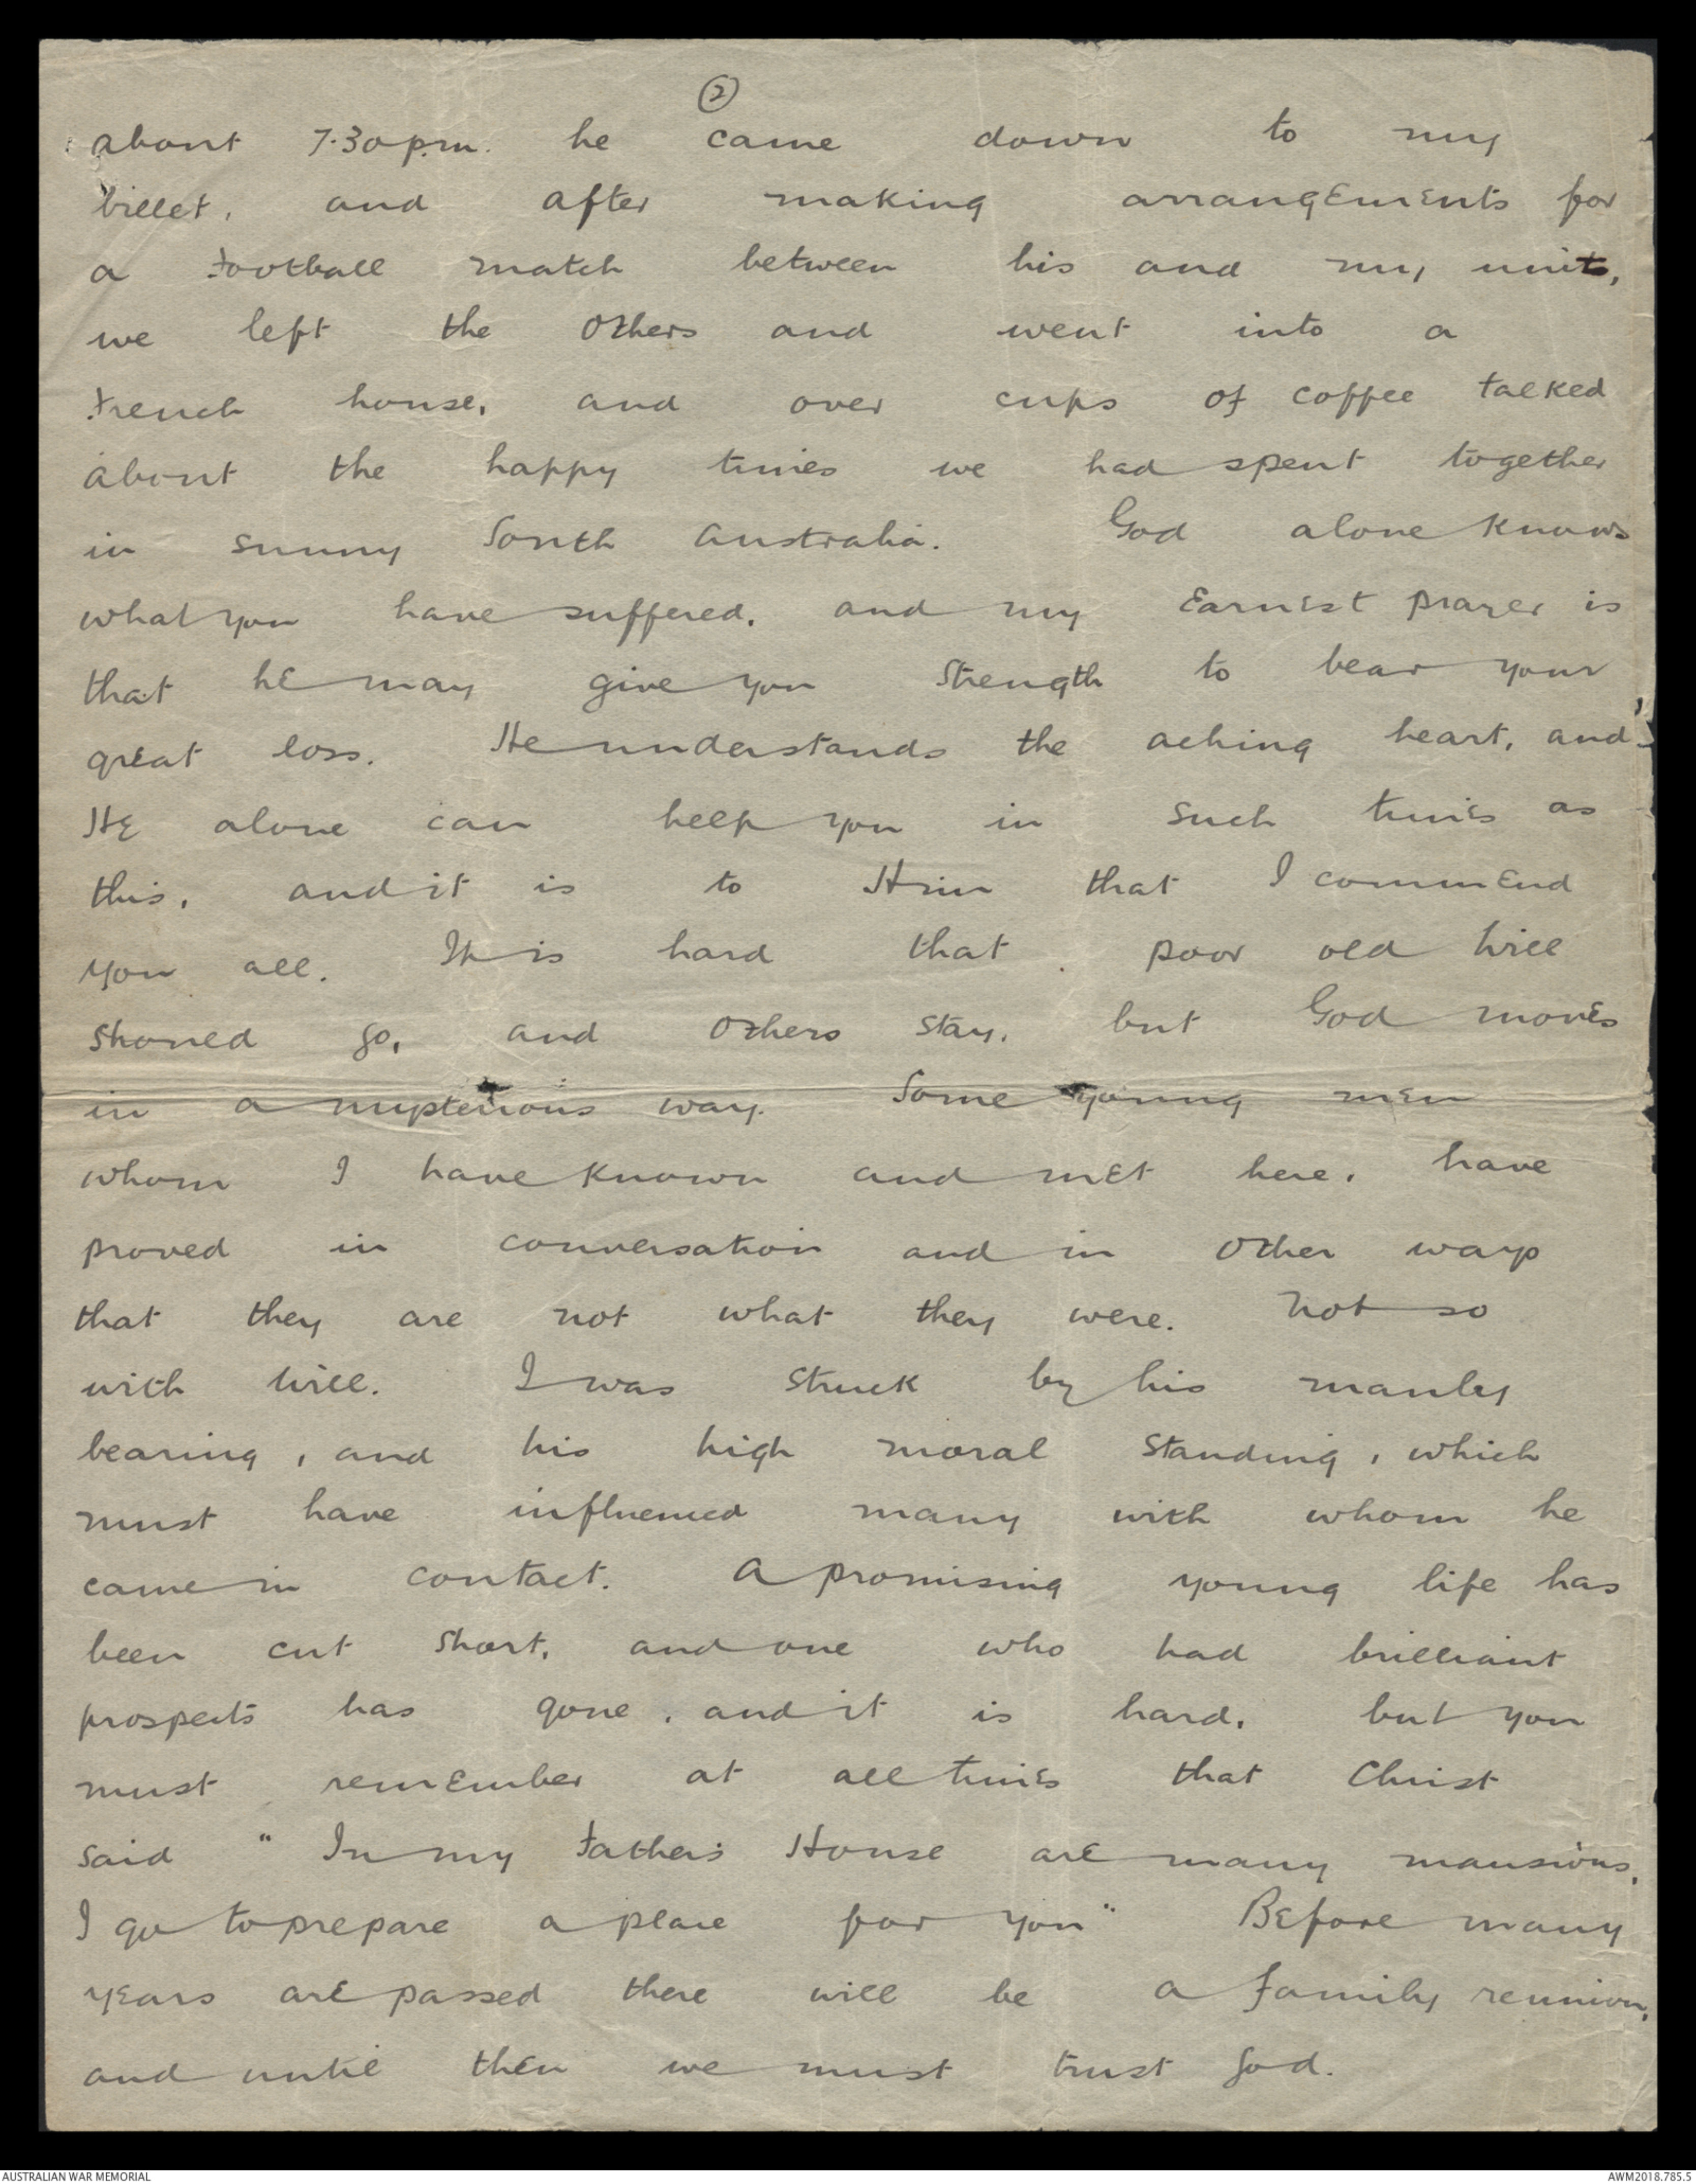 ②
about 7.30 p.m. he came down to my
billet, and after making arrangements for
a football match between his and my units,
we left the others and went into a
French house, and over cups of coffee talked
about the happy times we had spent together
in sunny South Australia. God alone knows
what you have suffered, and my earnest prayer is
that he may give you strength to bear your
great loss. He understands the aching heart, and
He alone can help you in such times as
this, and it is to Him that I commend
you all. It is hard that poor old Will
should go, and others stay, but God moves
in a mysterious way. Some young men
whom I have known and met here, have
proved in conversation and in other ways
that they are not what they were. Not so
with Will. I was struck by his manly
bearing, and his high moral standing, which
must have influenced many with whom he
came in contact. A promising young life has
been cut short, and one who had brilliant
prospects has gone, and it is hard, but you
must remember at all times that Christ
said " In my Father's House are many mansions,
I go to prepare a place for you" Before many
years are passed there will be a family reunion,
and until then we must trust God.
AUSTRALIAN WAR MEMORIAL
AWM2018.785.5